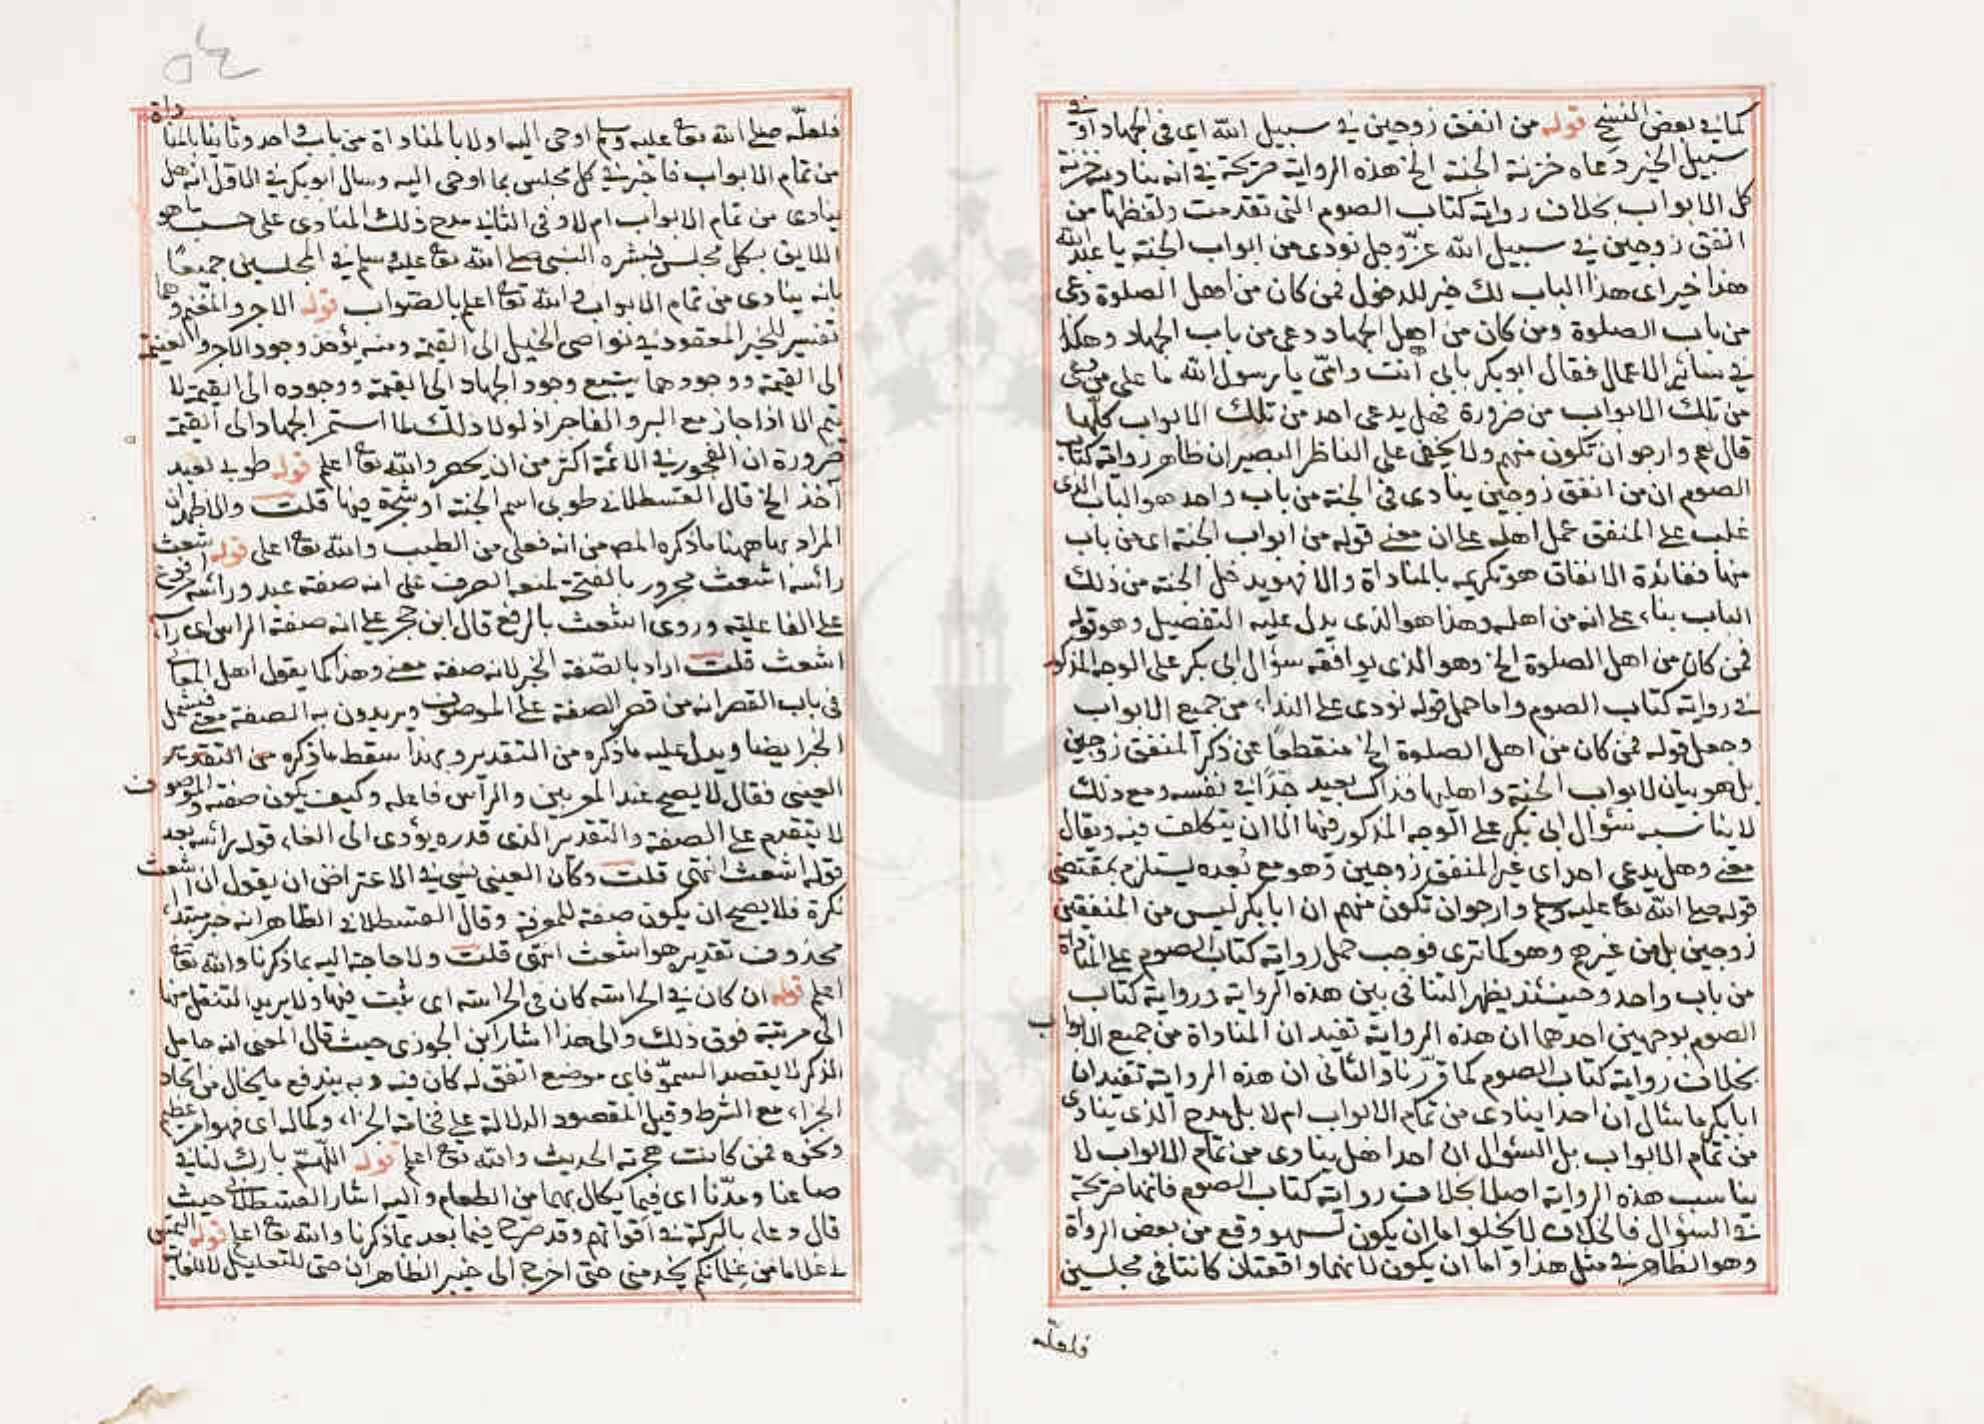 كما في بعض النسخ قوله من انفق زوجين في سبيل الله اى في الجهاد او في
سبيل الخير دعاه خزنة الجنة الخ هذه الرواية صريحة في انه يناديه خزنة
كل الابواب بخلاف رواية كتاب الصوم التى تقدمت ولفظها من
انفق زوجين في سبيل الله عزّ وجل نودى من ابواب الجنة يا عبد الله
هذا خير اى هذا الباب لك خير للدخول فمن كان من اهل الصلوة دعى
من باب الصلوة ومن كان من اهل الجهاد دعى من باب الجهاد وهكذا
في سائر الاعمال فقال ابو بكر بابى انت وامّى يا رسول الله ما على من دعى
من تلك الابواب من ضرورة فهل يدعى احد من تلك الابواب كلها
قال نعم وارجو ان تكون منهم ولا يخفى على الناظر البصير ان ظاهر رواية كتاب
الصوم ان من انفق زوجين ينادى في الجنة من باب واحد هو الباب الذى
غلب على المنفق عمل اهله على ان معنى قوله من ابواب الجنة اى من باب
منها ففائدة الانفاق هو تكريمه بالمناداة والا فهو يدخل الجنة من ذلك
الباب بناء على انه من اهله وهذا هو الذى يدل عليه التفصيل وهو قوله
فمن كان من اهل الصلوة الخ وهو الذى يوافقه سؤال ابى بكر على الوجه المذكور
في رواية كتاب الصوم واما حمل قوله نودى على النداء من جميع الابواب
وجعل قوله فمن كان من اهل الصلوة الخ منقطعا عن ذكر المنفق زوجين
بل هو بيان لابواب الجنة واهلها فذاك بعيد جدّا في نفسه ومع ذلك
لا يناسبه سؤال ابى بكر على الوجه المذكور فيها الا ان يتكلف فيه ويقال
معنى وهل يدعى احد اى غير المنفق زوجين وهو مع بُعده يستلزم بمقتضى
قوله صلى الله تعا عليه وسلم وارجو ان تكون منهم ان ابا بكر ليس من المنفقين
زوجين بل من غيرهم وهو كما ترى فوجب حمل رواية كتاب الصوم على المناداة
من باب واحد وحينئذ يظهر التنافى بين هذه الرواية ورواية كتاب
الصوم بوجهين احدهما ان هذه الرواية تفيد ان المناداة من جميع الابواب
بخلاف رواية كتاب الصوم كما قرّرنا والثانى ان هذه الرواية تفيد ان
ابا بكر ما سال ان احدا ينادى من تمام الابواب ام لا بل مدح الذى ينادى
من تمام الابواب بل السؤال ان احدا هل ينادى من تمام الابواب لا
يناسب هذه الرواية اصلا بخلاف رواية كتاب الصوم فانها صريحة
في السؤال فالخلاف لا يخلو اما ان يكون لسهو وقع من بعض الرواة
وهو الظاهر في مثل هذا او اما ان يكون لانهما واقعتان كانتا في مجلسين
فلعله
فلعلّه صلى الله تعا عليه وسلم اوحى اليه اولا بالمناداة من باب واحد وثانيا بالمناداة
من تمام الابواب فاخبر في كل مجلس بما اوحى اليه وسال ابو بكر في الاول انه هل
ينادى من تمام الابواب ام لا وفى الثانى مدح ذلك المنادى على حسب ما هو
اللايق بكل مجلس فبشره النبى صلى الله تعا عليه وسلم في المجلسين جميعا
بانه ينادى من تمام الابواب والله تعا اعلم بالصّواب قوله الاجر والمغنم وهما
تفسير للخير المعقود في نواصى الخيل الى القيمة ومنه يؤخذ وجود الاجر والغنيمة
الى القيمة ووجودهما يتبع وجود الجهاد الى القيمة ووجوده الى القيمة لا
يتم الا اذا جاز مع البر والفاجر اذ لولا ذلك لما استمر الجهاد الى القيمة
ضرورة ان الفجور في الائمة اكثر من ان يحصر والله تعا اعلم قوله طوبى لعبد
آخذ الخ قال القسطلانى طوبى اسم الجنة او شجرة فيها قلت والاظهر ان
المراد بها ههنا ما ذكره المص من انه فعلى من الطيب والله تعا اعلى قوله اشعث
رائسه اشعث مجرور بالفتحة لمنع الصرف على انه صفة عبد ورائسه مرفوع
على الفاعلية وروى اشعث بالرفع قال ابن حجر على انه صفة الراس اى راسه
اشعث قلت اراد بالصّفة الخبر لانه صفة معنى وهذا كما يقول اهل المعانى
في باب القصر انه من قصر الصفة على الموصوف ويريدون به الصفة معنى فيشمل
الخبر ايضا ويدل عليه ما ذكره من التقدير وبهذا سقط ما ذكره من التقدير
العينى فقال لا يصح عند المعربين والرأس فاعله وكيف يكون صفته والموصوف
لا يتقدم على الصفة والتقدير الذى قدره يؤدى الى الغاء قوله رائسه بعد
قوله اشعث انتهى قلت وكأن العينى نسى في الاعتراض ان يقول ان اشعث
نكرة فلا يصح ان يكون صفة للمعرفة وقال القسطلانى الظاهر انه خبر مبتداء
محذوف تقديره هو اشعث انتهى قلت ولا حاجة اليه بما ذكرنا والله تعا
اعلم قوله ان كان في الحراسة كان في الحراسة اى ثبت فيها ولا يريد التنقل منها
الى مرتبة فوق ذلك والى هذا اشار ابن الجوزى حيث قال المعنى انه خامل
الذكر لا يقصد السموّ فاى موضع اتفق له كان فيه وبه يندفع ما يخال من اتحاد
الجزاء مع الشرط وقيل المقصود الدلالة على فخامة الجزاء وكماله اى فهو امر عظيم
ونحوه فمن كانت هجرته الحديث والله تعا اعلم قوله اللهمّ بارك لنا في
صاعنا ومدّنا اى فيما يكال بهما من الطعام واليه اشار القسطلانى حيث
قال دعاء بالبركة في اقواتهم وقد صرّح فيما بعد بما ذكرنا والله تعا اعلم قوله التمس
لى غلاما من غلمانكم يخدمنى حتى اخرج الى خيبر الظاهر ان حتى للتعليل لا للغاية